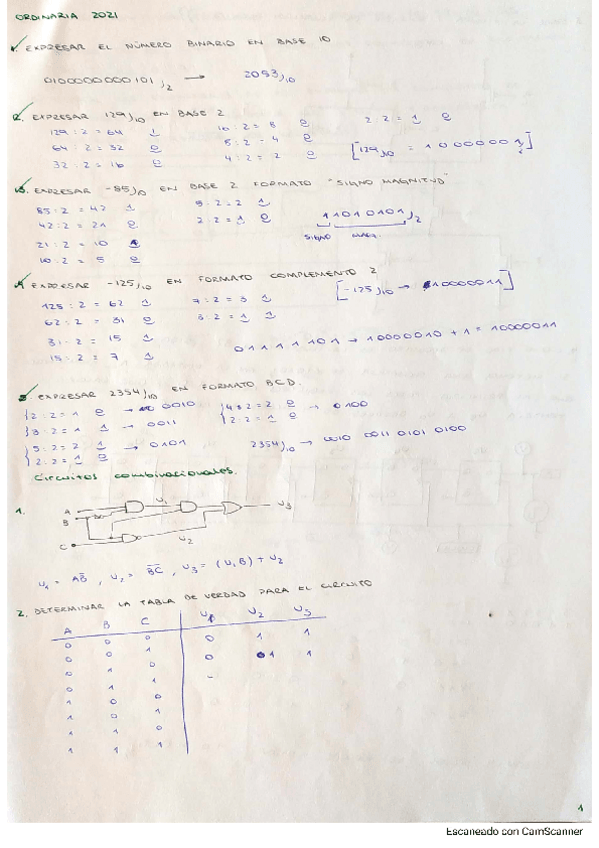 ORDINARIA 2021
1. EXPRESAR EL NÚMERO BINARIO EN BASE 10
0100000000101)2 → 2053)10
2. EXPRESAR 129)10 EN BASE 2
129 : 2 = 64 1 16 : 2 = 8 0 2 : 2 = 1 0
64 : 2 = 32 0 8 : 2 = 4 0 [129)10 = 10000001]
32 : 2 = 16 0 4 : 2 = 2 0
3. EXPRESAR -85)10 EN BASE 2 FORMATO "SIGNO MAGNITUD"
85 : 2 = 42 1 5 : 2 = 2 1
42 : 2 = 21 0 2 : 2 = 1 0 11010101)2
21 : 2 = 10 1 SIGNO MAG.
10 : 2 = 5 0
4. EXPRESAR -125)10 EN FORMATO COMPLEMENTO 2 [-125)10 → 10000011]
125 : 2 = 62 1 7 : 2 = 3 1
62 : 2 = 31 0 3 : 2 = 1 1
31 : 2 = 15 1 01111101 → 10000010 + 1 = 10000011
15 : 2 = 7 1
5. EXPRESAR 2354)10 EN FORMATO BCD.
2 : 2 = 1 0 → 0010 4 : 2 = 2 0 → 0100
3 : 2 = 1 1 → 0011 2 : 2 = 1 0
5 : 2 = 2 1 → 0101 2354)10 → 0010 0011 0101 0100
2 : 2 = 1 0
Circuitos combinacionales.
1. A U1 U3
B
C U2
U1 = AB̅, U2 = B̅C̅, U3 = (U1B) + U2
2. DETERMINAR LA TABLA DE VERDAD PARA EL CIRCUITO
A B C U1 U2 U3
0 0 0 0 1 1
0 0 1 0 1 1
0 1 0 -
0 1 1
1 0 0
1 0 1
1 1 0
1 1 1
1
Escaneado con CamScanner